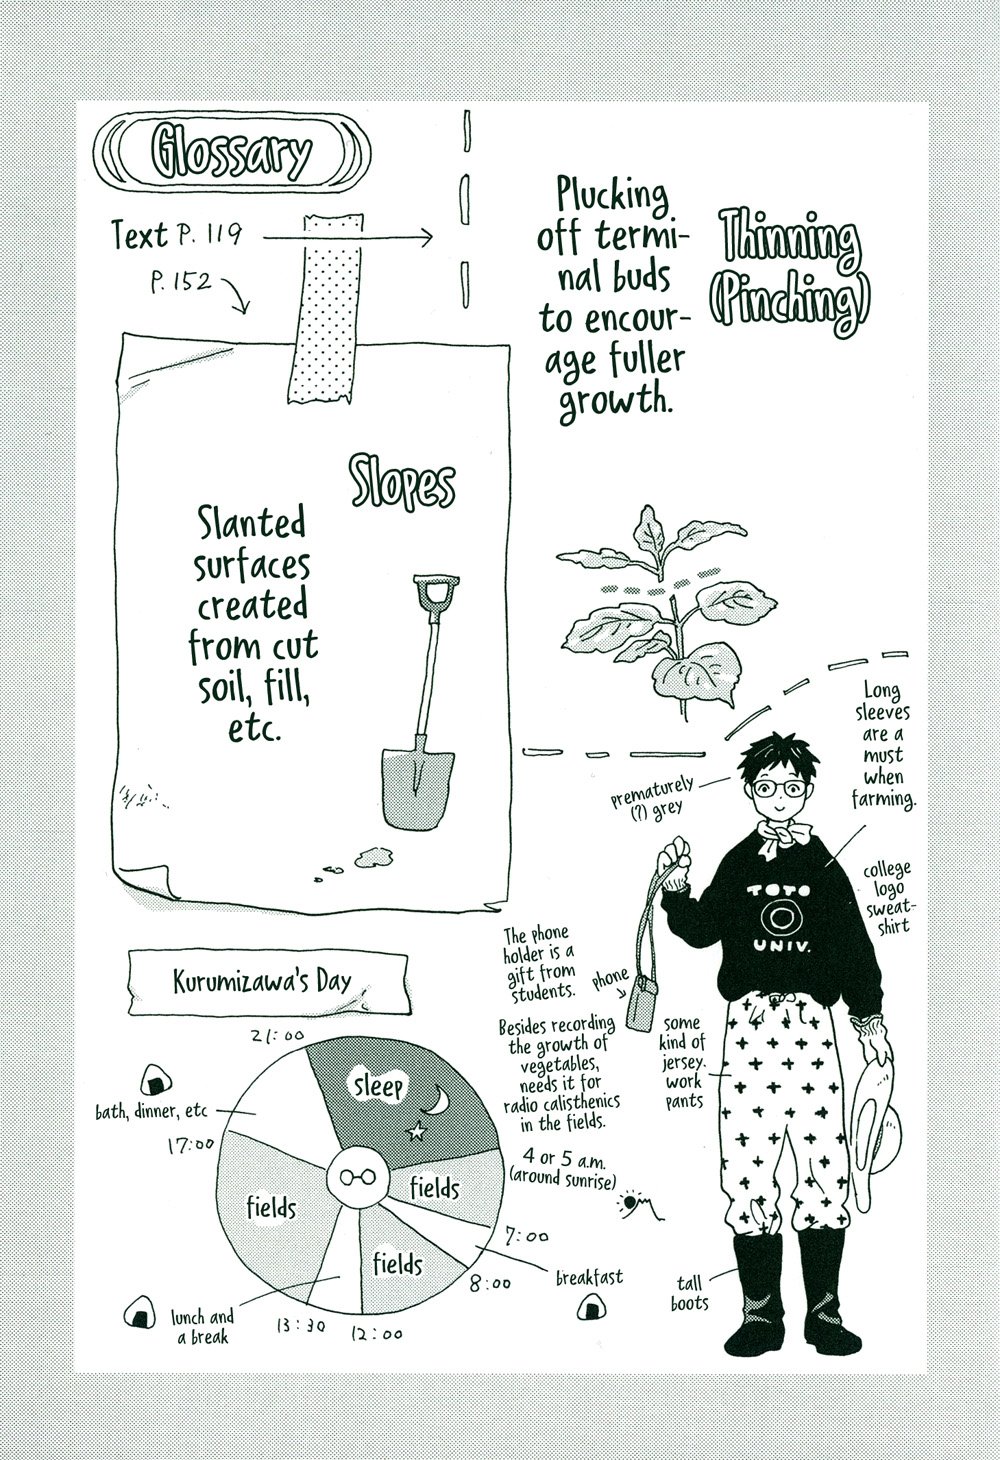 Glossary
Text P. 119
P. 152
Thinning
(Pinching)
Plucking
off termi-
nal buds
to encour-
age fuller
growth.
Slopes
Slanted
surfaces
created
from cut
soil, fill,
etc.
prematurely
(?) grey
Long
sleeves
are a
must
when
farming.
college
logo
sweat-
shirt
TOTO
UNIV.
The phone
holder is a
gift from
students.
phone
Besides recording
the growth of
vegetables,
needs it for
radio calisthenics
in the fields.
some
kind of
jersey.
work
pants
tall
boots
Kurumizawa's Day
21:00
sleep
4 or 5 a.m.
(around sunrise)
fields
7:00
breakfast
8:00
fields
12:00
lunch and
a break
13:30
fields
17:00
bath, dinner, etc